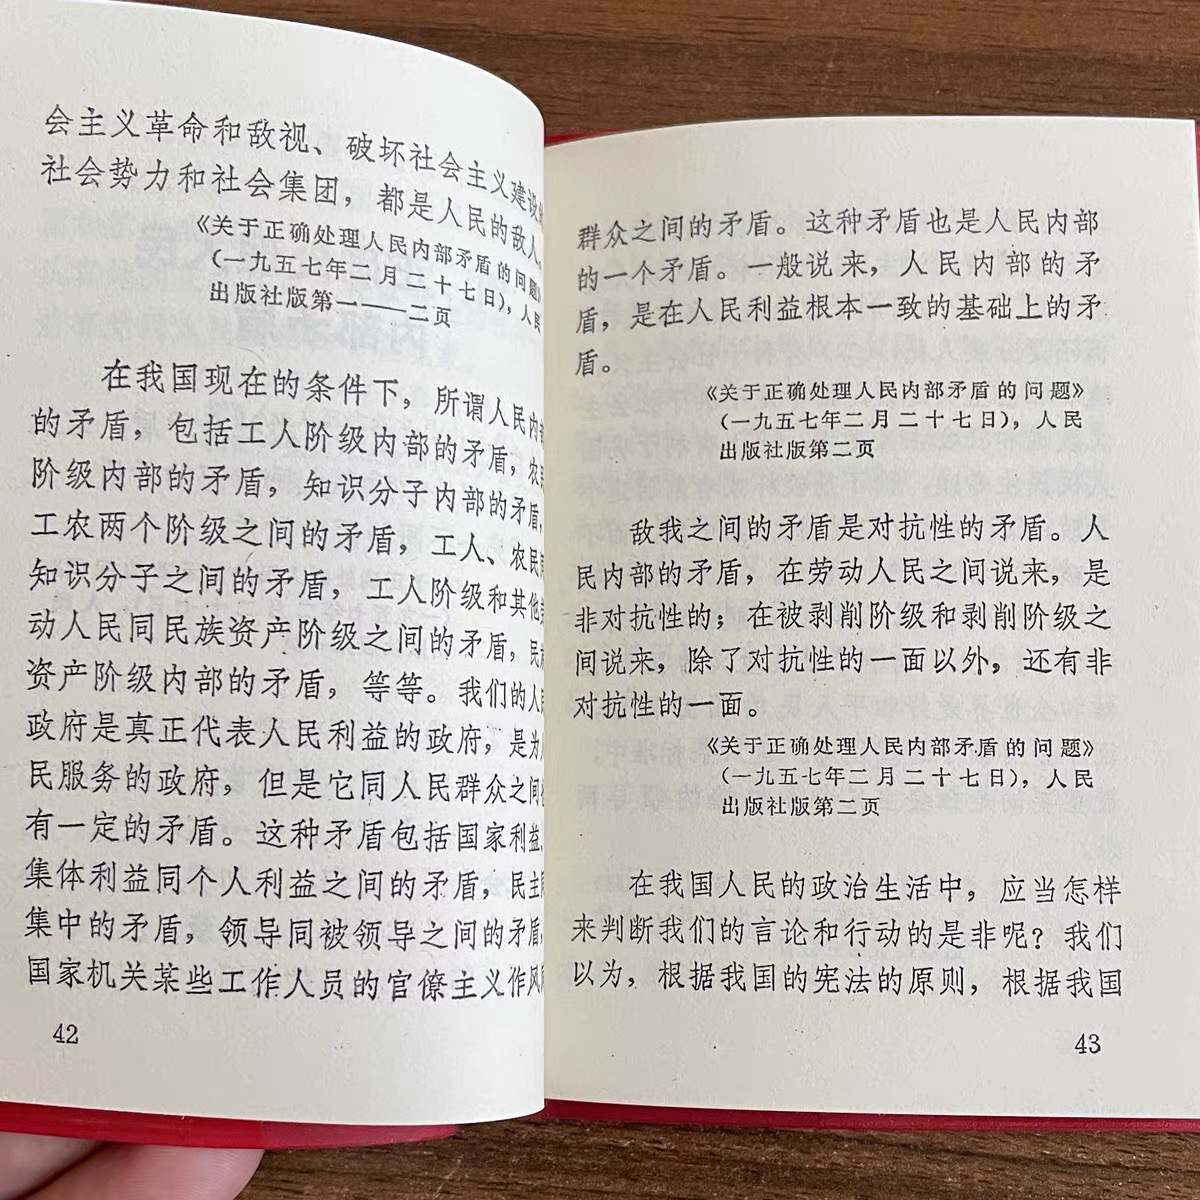 会主义革命和敌视、破坏社会主义建设
社会势力和社会集团，都是人民的敌人。
《关于正确处理人民内部矛盾的问题》
（一九五七年二月二十七日），人民
出版社版第一——二页
在我国现在的条件下，所谓人民内
的矛盾，包括工人阶级内部的矛盾，农
阶级内部的矛盾，知识分子内部的矛盾，
工农两个阶级之间的矛盾，工人、农民同
知识分子之间的矛盾，工人阶级和其他
动人民同民族资产阶级之间的矛盾，民
资产阶级内部的矛盾，等等。我们的人
政府是真正代表人民利益的政府，是为
民服务的政府，但是它同人民群众之间
有一定的矛盾。这种矛盾包括国家利益、
集体利益同个人利益之间的矛盾，民主同
集中的矛盾，领导同被领导之间的矛盾，
国家机关某些工作人员的官僚主义作风
42
群众之间的矛盾。这种矛盾也是人民内部
的一个矛盾。一般说来，人民内部的矛
盾，是在人民利益根本一致的基础上的矛
盾。
《关于正确处理人民内部矛盾的问题》
（一九五七年二月二十七日），人民
出版社版第二页
敌我之间的矛盾是对抗性的矛盾。人
民内部的矛盾，在劳动人民之间说来，是
非对抗性的；在被剥削阶级和剥削阶级之
间说来，除了对抗性的一面以外，还有非
对抗性的一面。
《关于正确处理人民内部矛盾的问题》
（一九五七年二月二十七日），人民
出版社版第二页
在我国人民的政治生活中，应当怎样
来判断我们的言论和行动的是非呢？我们
以为，根据我国的宪法的原则，根据我国
43